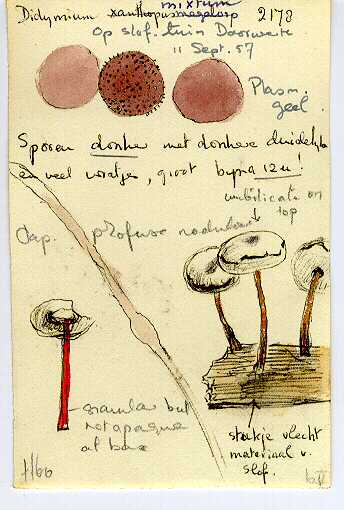 mixtum
Didymium xanthopus 2178
Op slof. tuin Doorwerth
11 Sept. 57
Plasm.
geel.
Sporen donker met donkere duidelyke
en veel wratjes, groot byna 12 u!
umbilicate on
top
Cap. profuse nodules
granular but
not opaque
at base
stukje vlecht
materiaal v.
slof.